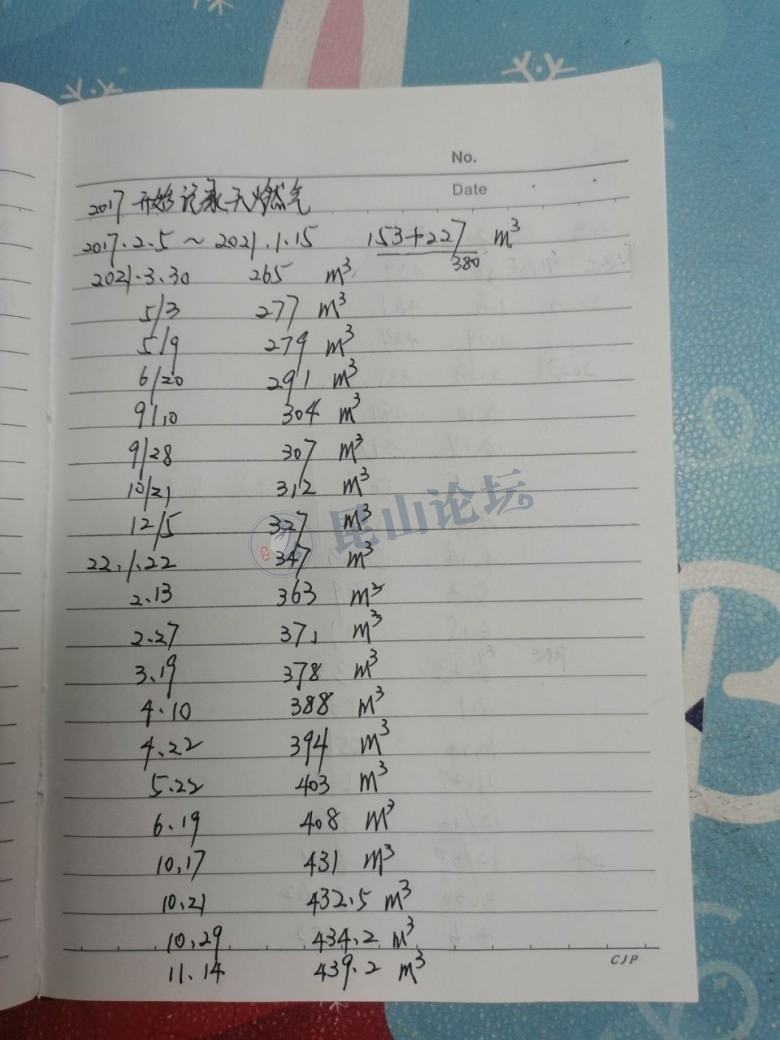 No.
Date
2017 开始记录天燃气
2017.2.5 ~ 2021.1.15 153+227 m³
380
2021.3.30 265 m³
5/3 277 m³
5/9 279 m³
6/20 291 m³
9/10 304 m³
9/28 307 m³
10/21 312 m³
12/5 327 m³
22.1.22 347 m³
2.13 363 m³
2.27 371 m³
3.19 378 m³
4.10 388 m³
4.22 394 m³
5.22 403 m³
6.19 408 m³
10.17 431 m³
10.21 432.5 m³
10.29 434.2 m³
11.14 439.2 m³
CJP
昆山论坛